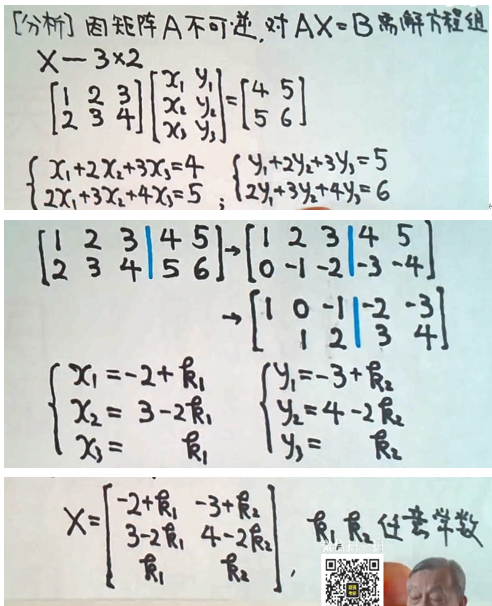 [分析] 因矩阵A不可逆,对AX=B需解方程组
X — 3×2
[1 2 3; 2 3 4] [x₁ y₁; x₂ y₂; x₃ y₃] = [4 5; 5 6]
{ x₁+2x₂+3x₃=4 ; { y₁+2y₂+3y₃=5
2x₁+3x₂+4x₃=5 ; 2y₁+3y₂+4y₃=6
[1 2 3 | 4 5; 2 3 4 | 5 6] → [1 2 3 | 4 5; 0 -1 -2 | -3 -4]
→ [1 0 -1 | -2 -3; 1 2 | 3 4]
{ x₁=-2+k₁ { y₁=-3+k₂
x₂= 3-2k₁ y₂=4-2k₂
x₃= k₁ y₃= k₂
X = [-2+k₁ -3+k₂; 3-2k₁ 4-2k₂; k₁ k₂], k₁ k₂ 任意常数